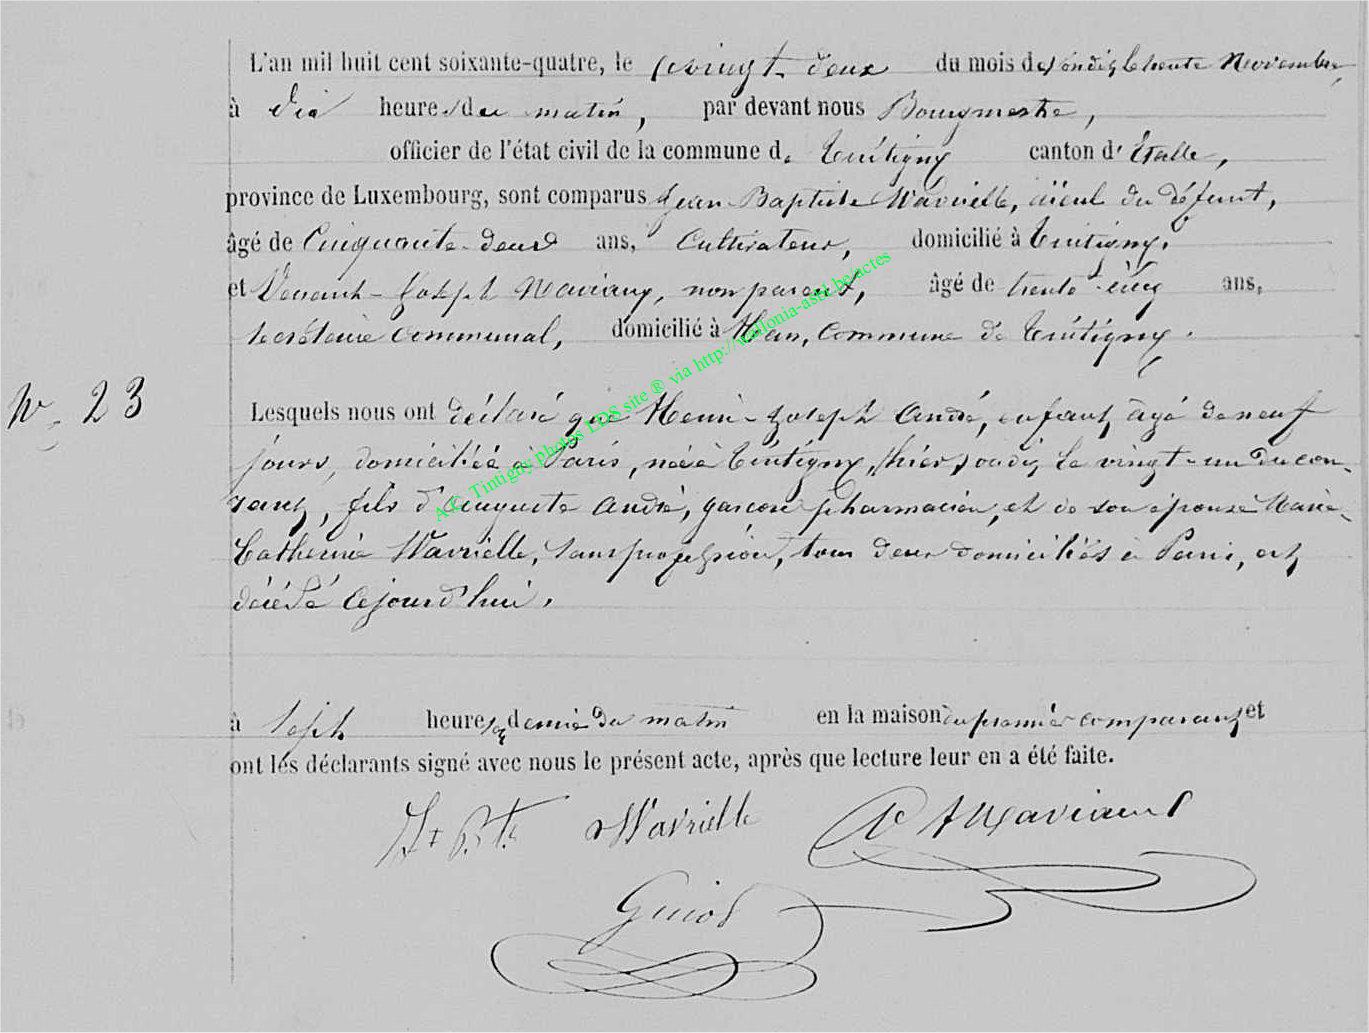 L'an mil huit cent soixante-quatre, le vingt deux du mois de novembre,
à dix heures du matin, par devant nous Bourgmestre,
officier de l'état civil de la commune de Tintigny canton d'Étalle,
province de Luxembourg, sont comparus Jean-Baptiste Wavrielle, aïeul du défunt,
âgé de Cinquante-deux ans, Cultivateur, domicilié à Tintigny,
et Joseph non parent, âgé de trente-cinq ans,
secrétaire communal, domicilié à Han, commune de Tintigny.
N° 23
Lesquels nous ont déclaré que Henri-Joseph André, enfant, âgé de neuf
jours, domicilié à Paris, né à Tintigny, le vingt-un du cou-
rant, fils d'Auguste André, garçon pharmacien, et de son épouse Marie-
Catherine Wavrielle, sans profession, tous deux domiciliés à Paris, est
décédé cejourd'hui,
à sept heures & demie du matin en la maison du premier comparant et
ont les déclarants signé avec nous le présent acte, après que lecture leur en a été faite.
J+ Bte Wavrielle
A.C. Tintigny photos LDS site ® via http://wallonia-asbl.be/actes